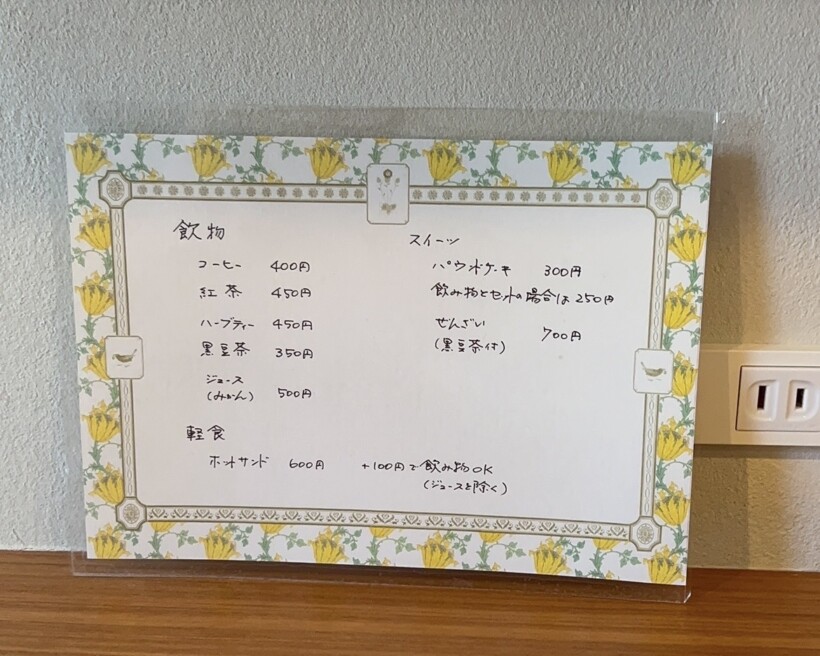 飲物
コーヒー 400円
紅茶 450円
ハーブティー 450円
黒豆茶 350円
ジュース
(みかん) 500円
軽食
ホットサンド 600円 +100円で飲み物OK
(ジュースを除く)
スイーツ
パウンドケーキ 300円
飲み物とセットの場合は250円
ぜんざい
(黒豆茶付) 700円